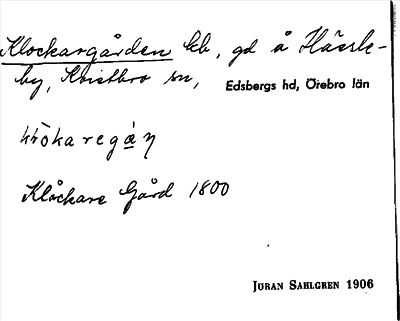 Klockargården lb, gd å Hässle-
by, Kvistbro sn, Edsbergs hd, Örebro län
klòkaregà̱ŋ
Klåckare Gård 1800
JÖRAN SAHLGREN 1906